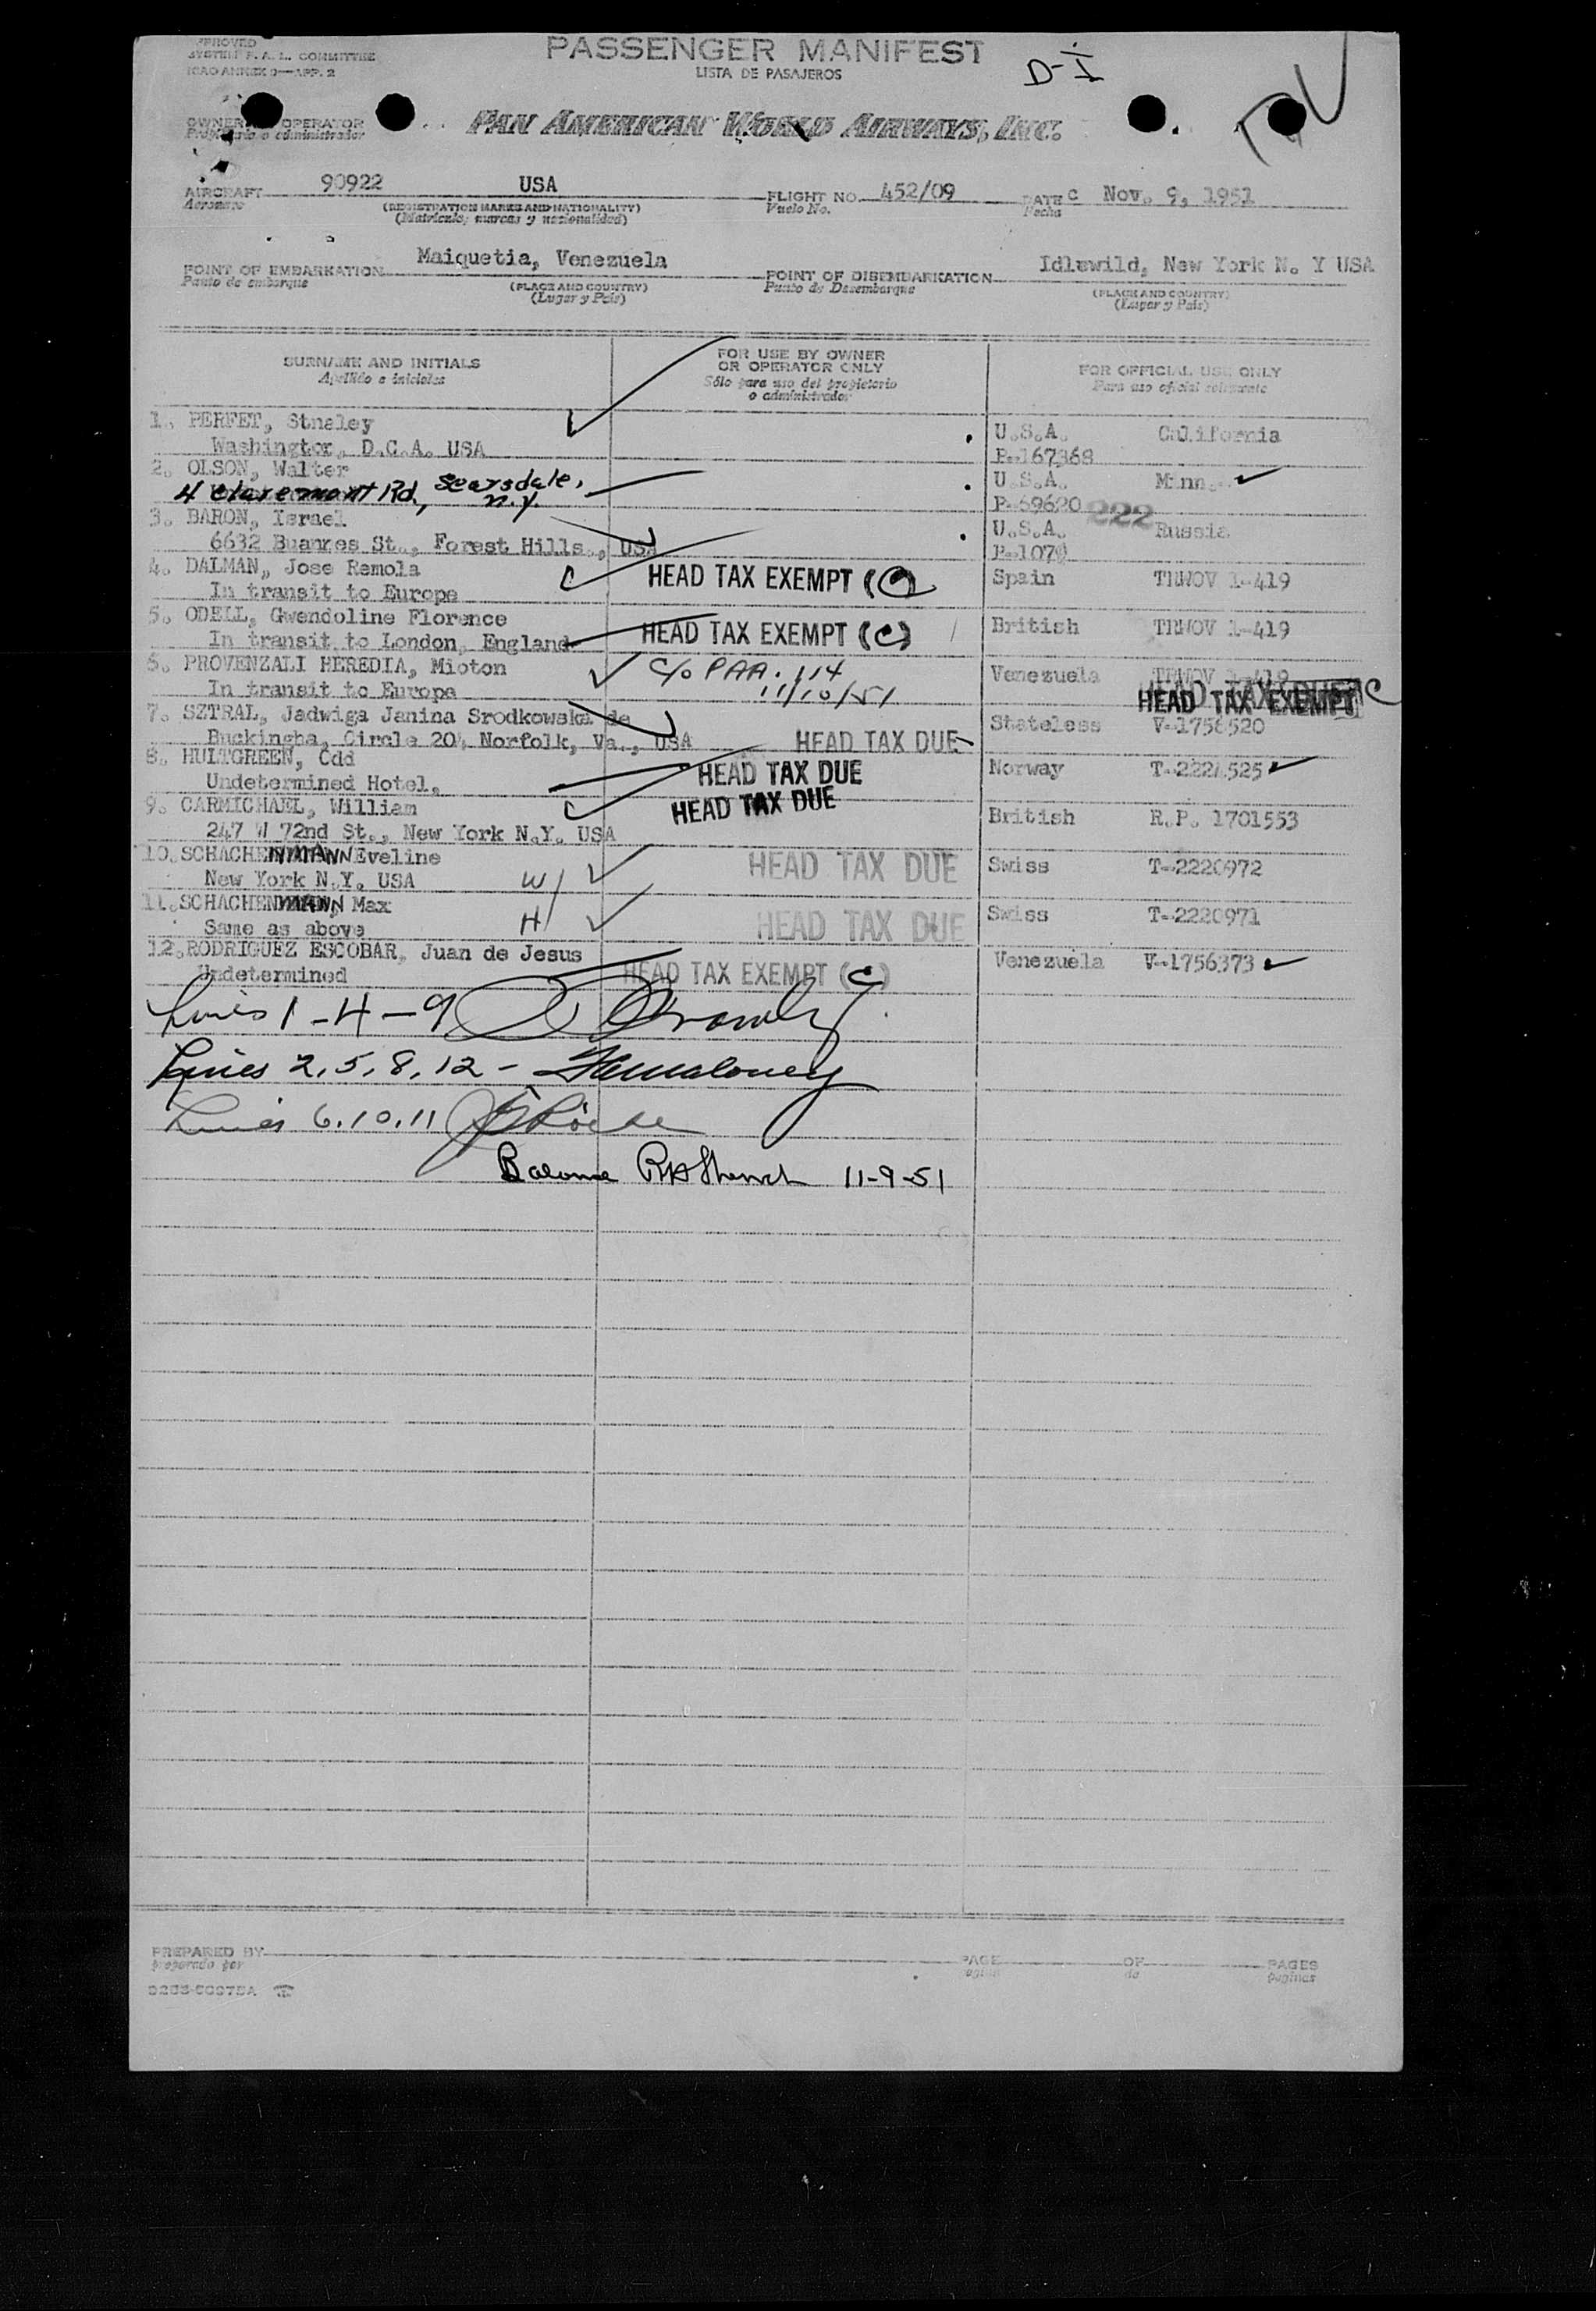 APPROVED
SYSTEM F. A. L. COMMITTEE
ICAO ANNEX 9—APP. 2
PASSENGER MANIFEST
LISTA DE PASAJEROS
D-I
OWNER OPERATOR
Propietario o administrador
PAN AMERICAN WORLD AIRWAYS, INC.
AIRCRAFT 90922 USA FLIGHT NO. 452/09 DATE c Nov. 9, 1951
Aeronave (REGISTRATION MARKS AND NATIONALITY) Vuelo No. Fecha
(Matrícula, marcas y nacionalidad)
POINT OF EMBARKATION Maiquetia, Venezuela POINT OF DISEMBARKATION Idlewild, New York N. Y USA
Punto de embarque (PLACE AND COUNTRY) Punto de Desembarque (PLACE AND COUNTRY)
(Lugar y País) (Lugar y País)
SURNAME AND INITIALS FOR USE BY OWNER OR OPERATOR ONLY FOR OFFICIAL USE ONLY
Apellido e iniciales Sólo para uso del propietario o administrador Para uso oficial solamente
1. PERFET, Stnaley U.S.A. California
Washington, D.C.A. USA P-167368
2. OLSON, Walter U.S.A. Minn.
4 Claremont Rd., Scarsdale, N.Y. P-69620
222
3. BARON, Israel U.S.A. Russia
6632 Buannes St., Forest Hills., USA
4. DALMAN, Jose Remola HEAD TAX EXEMPT (C) Spain TRWOV 1-419
In transit to Europe
5. ODELL, Gwendoline Florence HEAD TAX EXEMPT (C) British TRWOV 1-419
In transit to London, England
6. PROVENZALI HEREDIA, Mioton C/o PAA. 114 Venezuela TRWOV 1-419
In transit to Europe 11/10/51 HEAD TAX EXEMPT
7. SZTRAL, Jadwiga Janina Srodkowska de Stateless V-1756520
Buckingha, Circle 204 Norfolk, Va., USA HEAD TAX DUE
8. HULTGREEN, Odd HEAD TAX DUE Norway T-2224525
Undetermined Hotel,
9. CARMICHAEL, William HEAD TAX DUE British R.P. 1701553
247 W 72nd St., New York N.Y. USA
10. SCHACHENMANN Eveline HEAD TAX DUE Swiss T-2220972
New York N.Y. USA W/
11. SCHACHENMANN, Max HEAD TAX DUE Swiss T-2220971
Same as above H/
12. RODRIGUEZ ESCOBAR, Juan de Jesus Venezuela V-1756373
Undetermined HEAD TAX EXEMPT (C)
Lines 1-4-9
Lines 2, 5, 8, 12 -
Lines 6.10.11
11-9-51
PREPARED BY PAGE OF PAGES
preparado por página de páginas